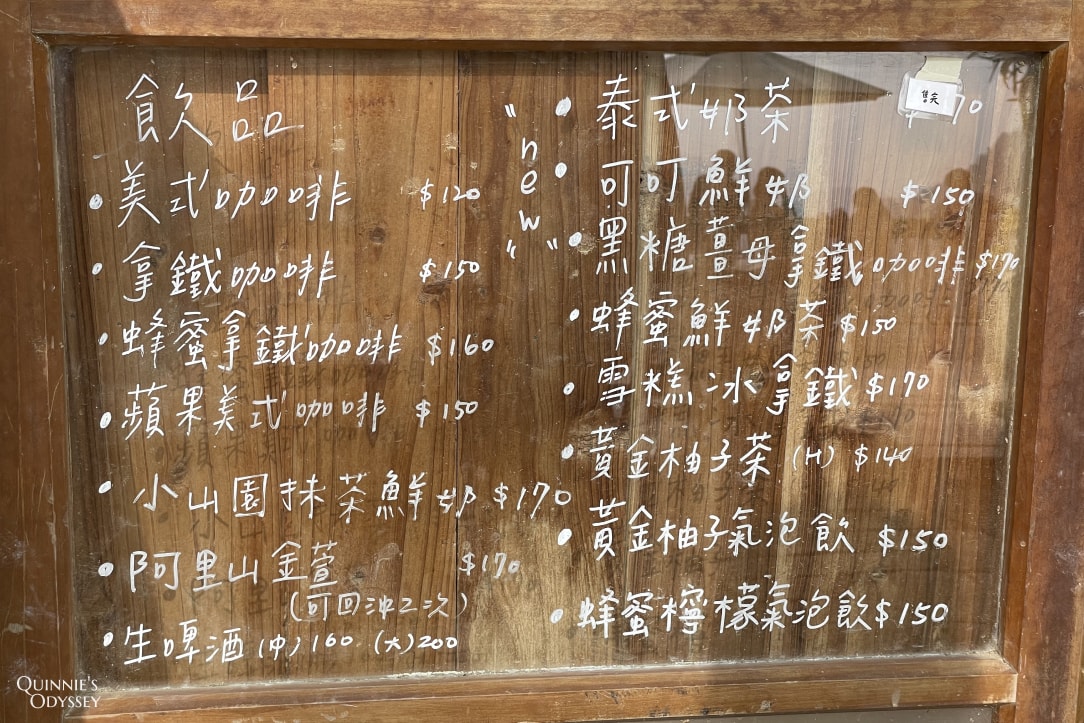 飲品
• 美式咖啡 $120
• 拿鐵咖啡 $150
• 蜂蜜拿鐵咖啡 $160
• 蘋果美式咖啡 $150
• 小山園抹茶鮮奶 $170
• 阿里山金萱 $170
(可回沖2次)
• 生啤酒 (中) 160 (大) 200
"new"
• 泰式奶茶 70
售完
• 可可鮮奶 $150
• 黑糖薑母拿鐵咖啡 $170
• 蜂蜜鮮奶茶 $150
• 雪糕冰拿鐵 $170
• 黃金柚子茶 (H) $140
• 黃金柚子氣泡飲 $150
• 蜂蜜檸檬氣泡飲 $150
QUINNIE'S
ODYSSEY